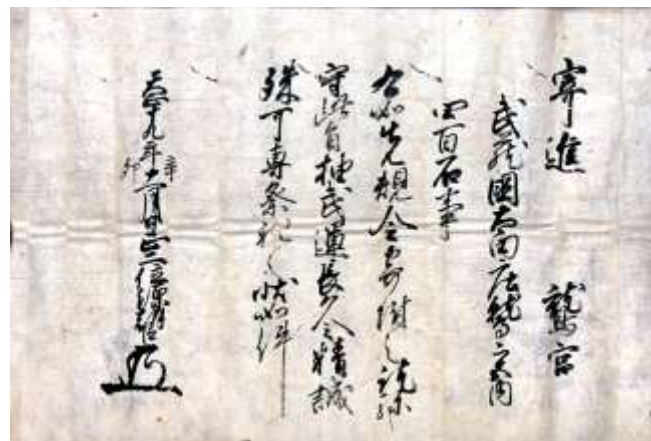 寄進　鷲宮
武蔵国太田庄鷲宮内
四百石事
右如先規令寄附之訖弥
守此旨抽武運長久之精誠
殊可専祭祀之状如件
天正十九年辛卯十一月日正二位源朝臣家康